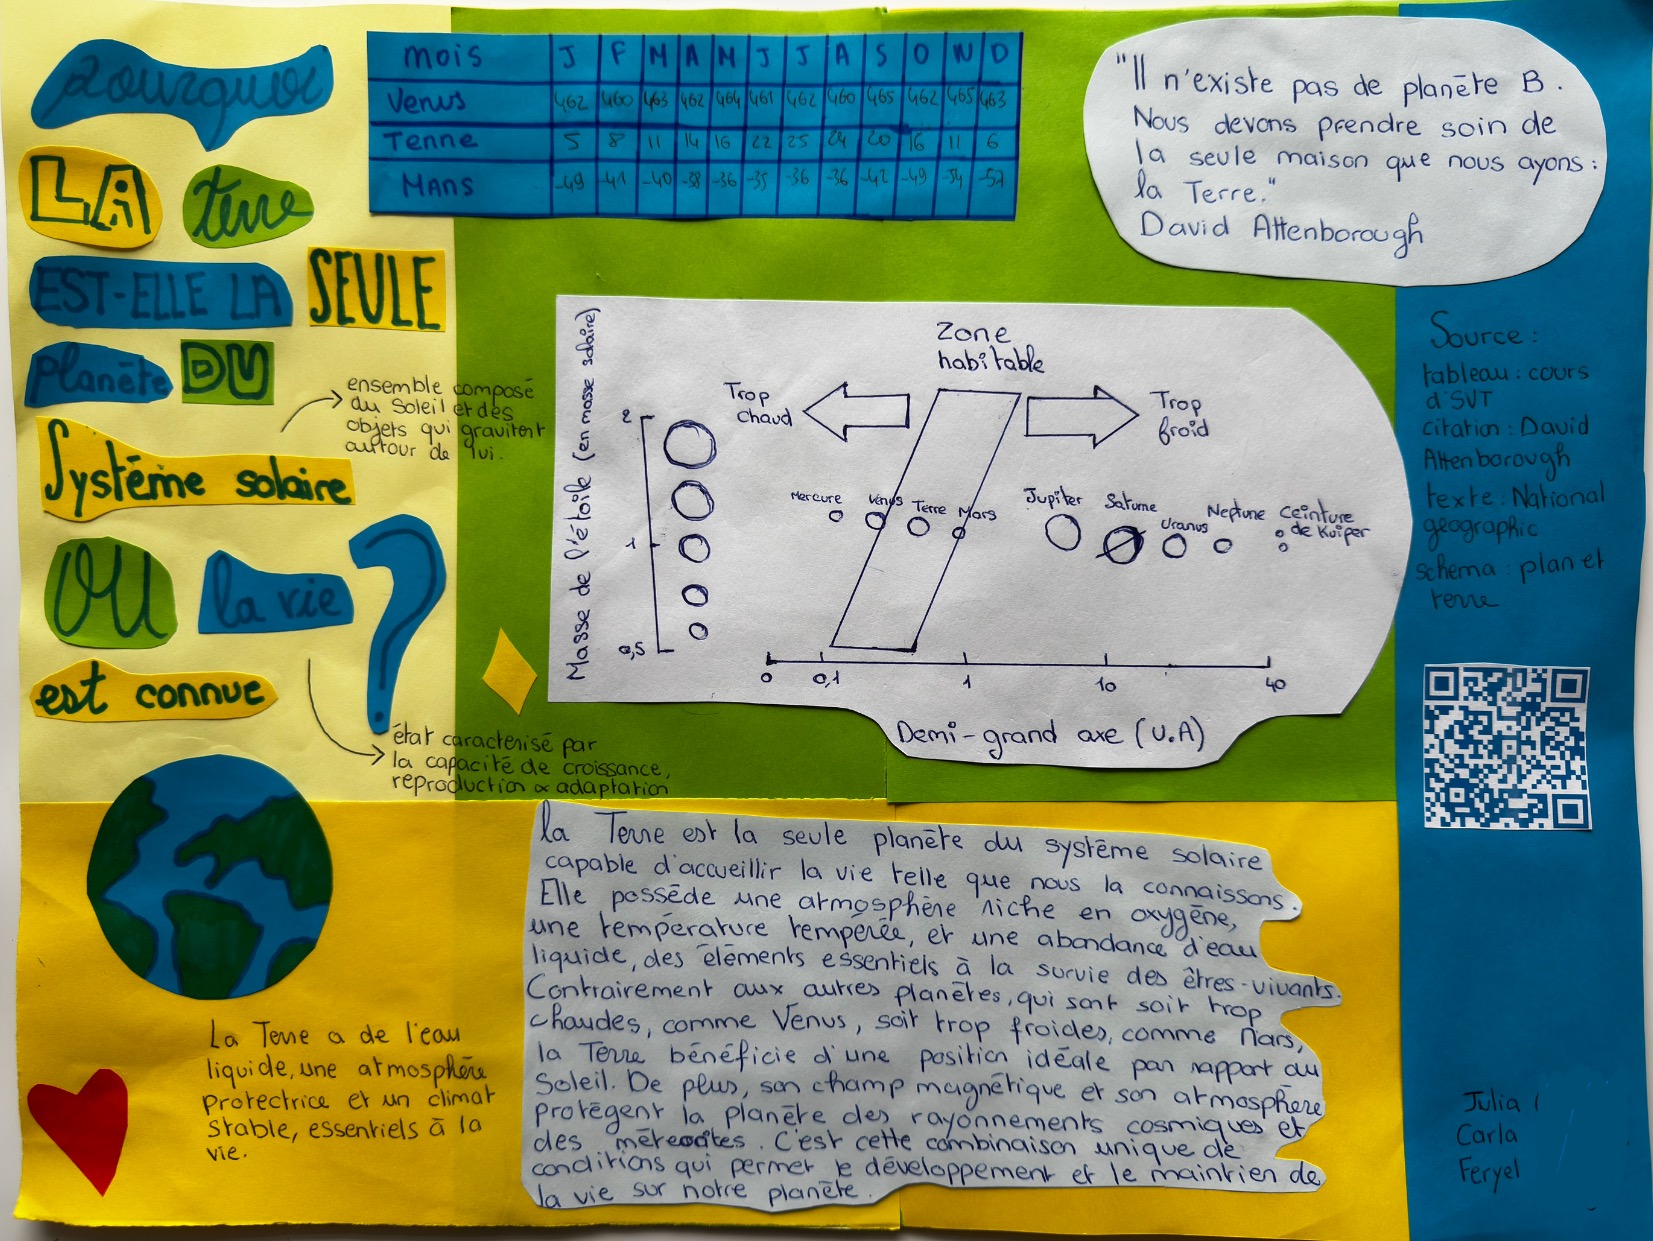 Pourquoi
LA terre
EST-ELLE LA SEULE
planète DU
Système solaire
OU la vie ?
est connue
ensemble composé
du Soleil et des
objets qui gravitent
autour de lui.
état caractérisé par
la capacité de croissance,
reproduction & adaptation
mois J F M A M J J A S O N D
Venus 462 460 463 462 464 461 462 460 465 462 465 463
Terre 5 8 11 14 16 22 25 24 20 16 11 6
Mars -49 -41 -40 -38 -36 -35 -36 -36 -42 -49 -54 -57
"Il n'existe pas de planète B.
Nous devons prendre soin de
la seule maison que nous ayons :
la Terre."
David Attenborough
Masse de l'étoile (en masse solaire)
2
1
0,5
Zone
habitable
Trop
chaud
Trop
froid
Mercure Vénus Terre Mars Jupiter Saturne Uranus Neptune Ceinture
de Kuiper
0 0,1 1 10 40
Demi-grand axe (U.A)
Source :
tableau : cours
d'SVT
citation : David
Attenborough
texte : National
géographic
schema : plan et
terre
La Terre a de l'eau
liquide, une atmosphère
protectrice et un climat
stable, essentiels à la
vie.
la Terre est la seule planète du système solaire
capable d'accueillir la vie telle que nous la connaissons.
Elle possède une atmosphère riche en oxygène,
une température tempérée, et une abondance d'eau
liquide, des éléments essentiels à la survie des êtres-vivants.
Contrairement aux autres planètes, qui sont soit trop
chaudes, comme Venus, soit trop froides, comme Mars,
la Terre bénéficie d'une position idéale par rapport au
Soleil. De plus, son champ magnétique et son atmosphère
protègent la planète des rayonnements cosmiques et
des météorites. C'est cette combinaison unique de
conditions qui permet le développement et le maintien de
la vie sur notre planète.
Julia
Carla
Feryel